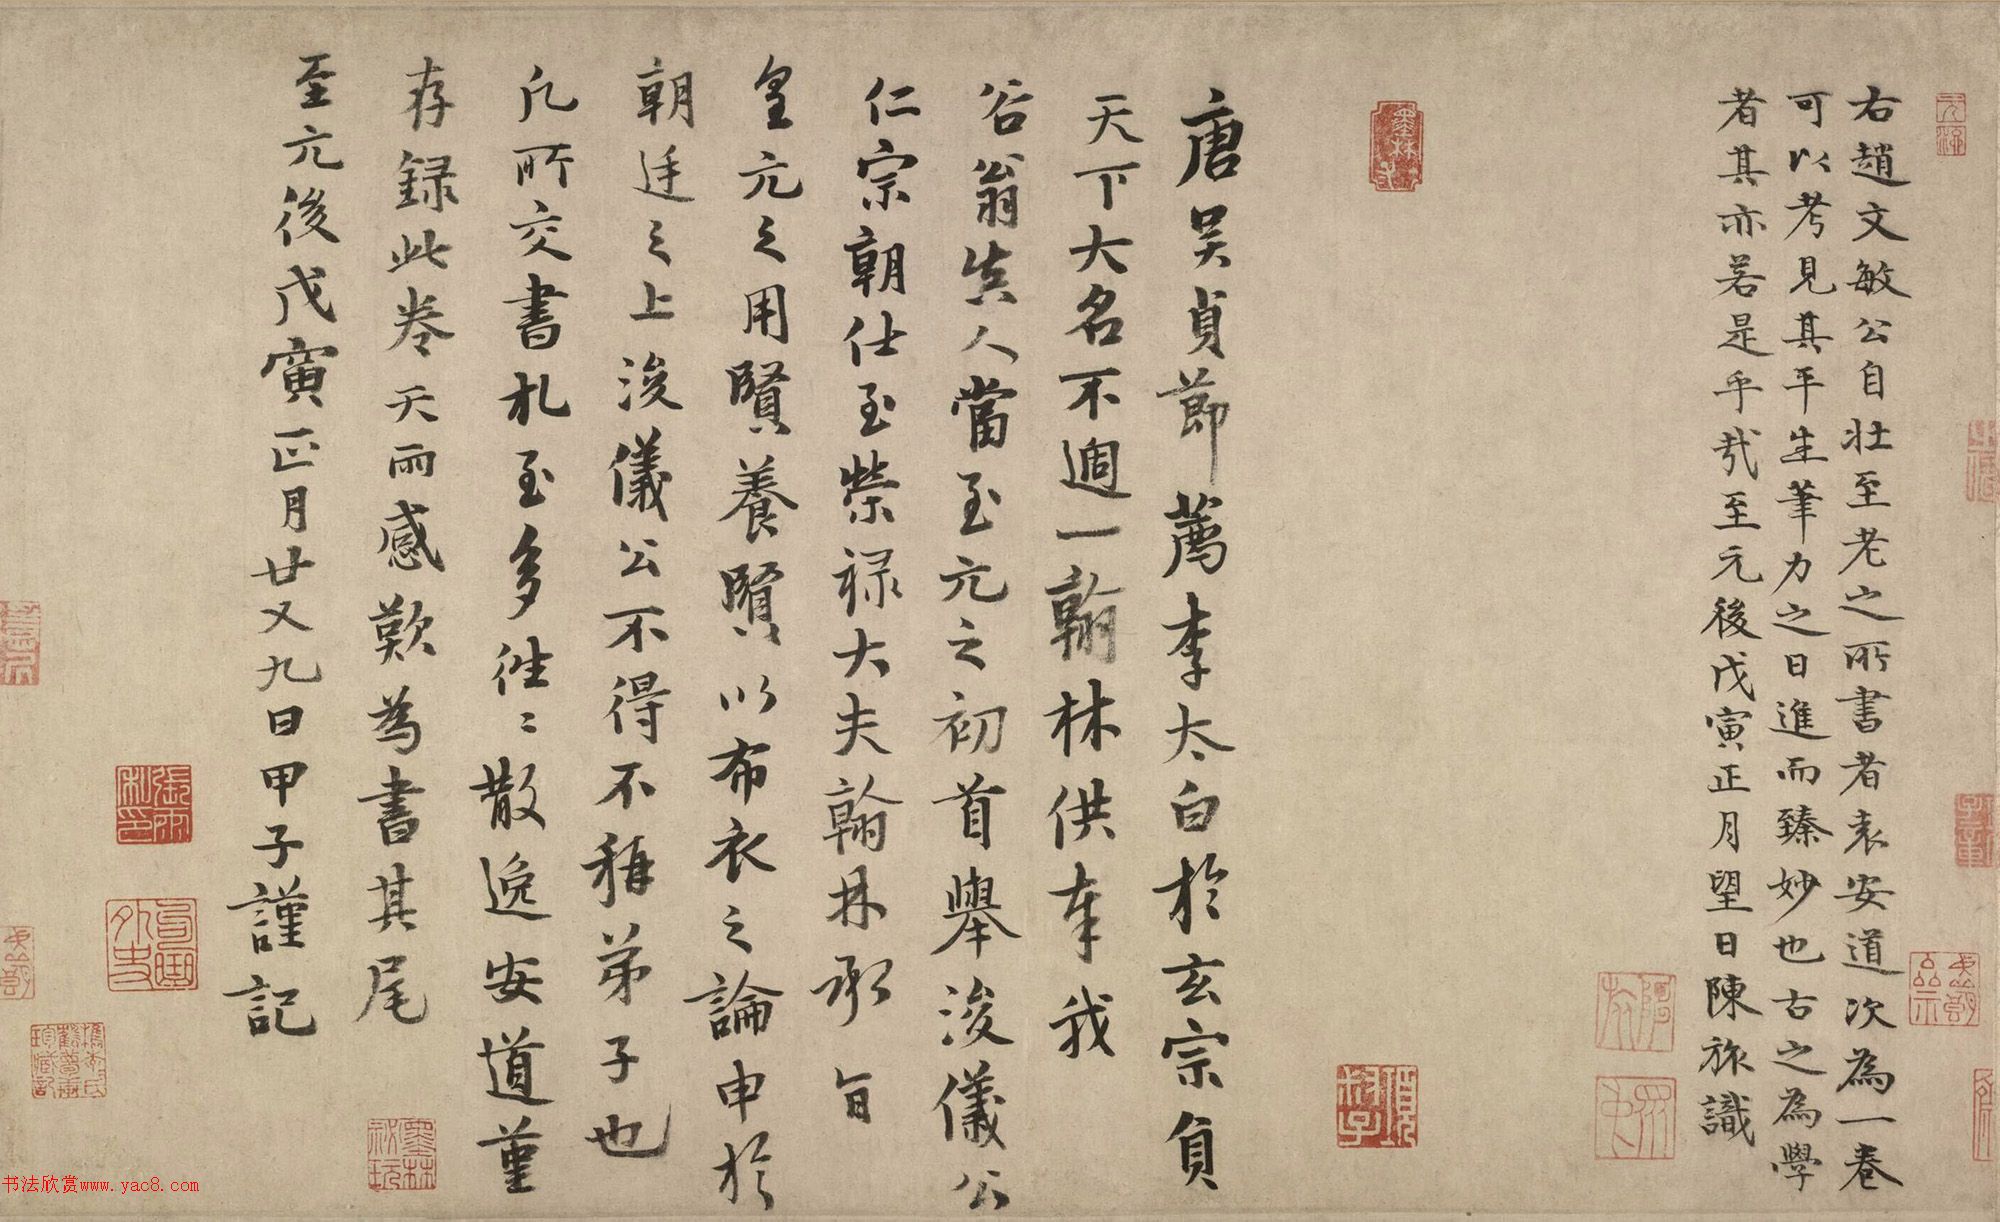 右趙文敏公自壯至老之所書者袁安道次為一卷
可以考見其平生筆力之日進而臻妙也古之為學
者其亦若是乎哉至元後戊寅正月望日陳旅識
唐吳貞節薦李太白於玄宗負
天下大名不過一翰林供奉我
谷翁真人當至元之初首舉浚儀公
仁宗朝仕至榮祿大夫翰林承旨
皇元之用賢養賢以布衣之論申於
朝廷之上浚儀公不得不稱弟子也
凡所交書札至多往〻散逸安道堇
存録此卷天雨感歎為書其尾
至元後戊寅正月廿又九日甲子謹記
墨林
項子
書法欣赏www.yac8.com